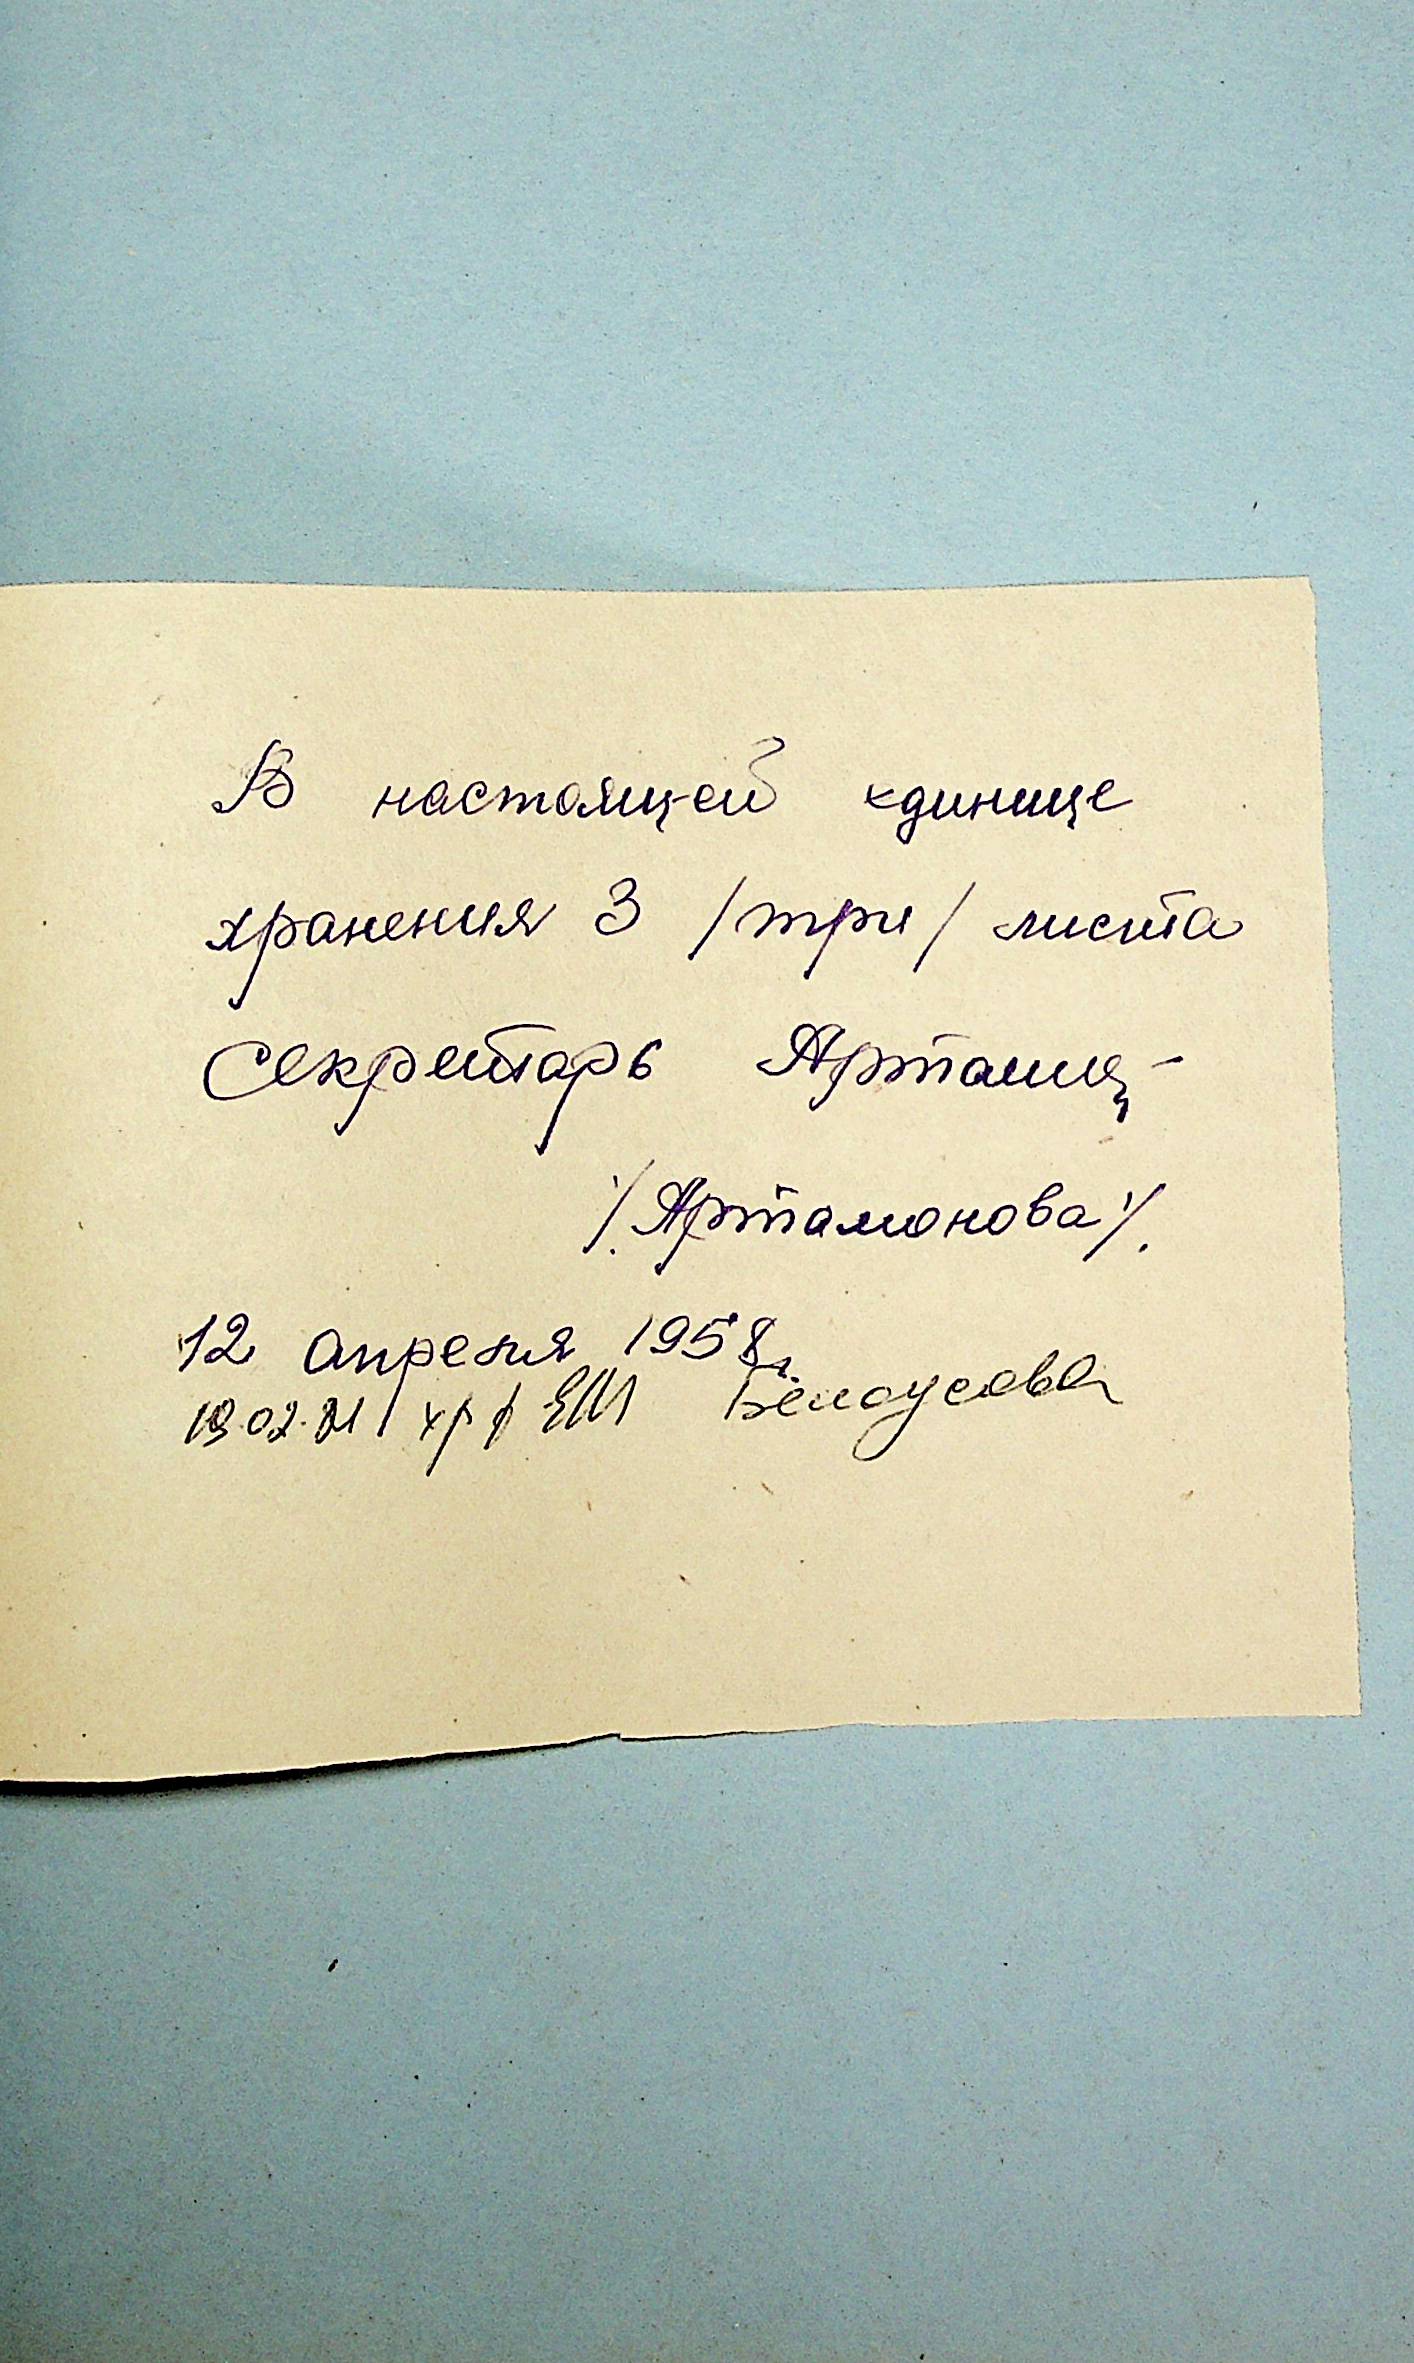 В настоящей единице
хранения 3 /три/ листа
Секретарь
/Артамонова/.
12 апреля 1958 г.
Белоусова